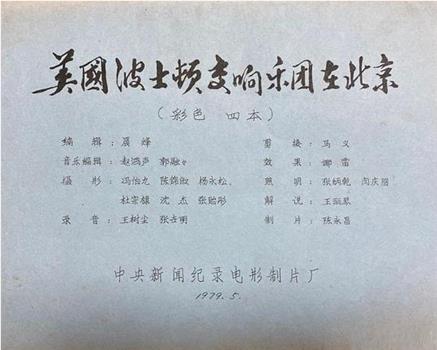 美國波士顿交响乐团在北京
(彩色 四本)
编 辑：晨 峰 剪 接：马 义
音乐编辑：赵鸿声 郭融々 效 果：娜 雷
摄 影：冯怡九 陈锦俶 杨永松、 照 明：张炳乾
杜宗雄 沈 杰 张贻彤 解 说：王
录 音：王树尘 张云明 制 片：陈永昌
中央新闻纪录电影制片厂
1979.5.